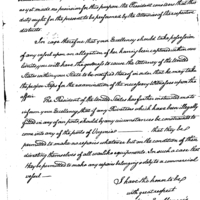 as yet made no provision for this purpose, the President considers that this
duty ought for the present to be performed by the Attornies of the respective
districts.
In case therefore that your Excellency should take possession
of any vessel upon an allegation of her having been captured within our
limits, you will have the goodness to cause the Attorney of the United
States within your State to be notified thereof in order that he may take
the proper steps for the examination of the necessary witnesses upon the
affair.
The President of the United States has further instructed me to
inform your Excellency that if any Privateers which have been illegally
fitted in any of our ports, should by any circumstances be constrained to
come into any of the ports of Virginia that they be
permitted to make no repairs whatever but on the condition of their
divesting themselves of all warlike equipments. In such a case that
they be permitted to make any repairs belonging solely to a commercial
vessel
I have the honor to be
with great respect